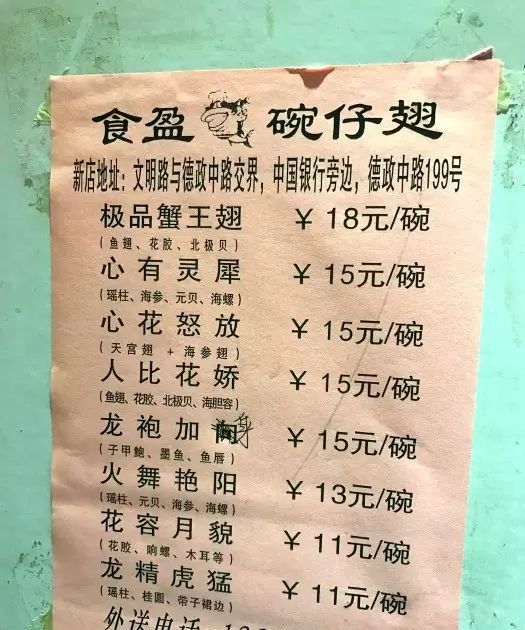 食盈 碗仔翅
新店地址：文明路与德政中路交界，中国银行旁边，德政中路199号
极品蟹王翅 ￥18元/碗
（鱼翅、花胶、北极贝）
心有灵犀 ￥15元/碗
（瑶柱、海参、元贝、海螺）
心花怒放 ￥15元/碗
（天宫翅 + 海参翅）
人比花娇 ￥15元/碗
（鱼翅、花胶、北极贝、海胆容）
龙袍加身 ￥15元/碗
（子甲鲍、墨鱼、鱼唇）
火舞艳阳 ￥13元/碗
（瑶柱、元贝、海参、海螺）
花容月貌 ￥11元/碗
（花胶、响螺、木耳等）
龙精虎猛 ￥11元/碗
（瑶柱、桂圆、带子裙边）
外送电话